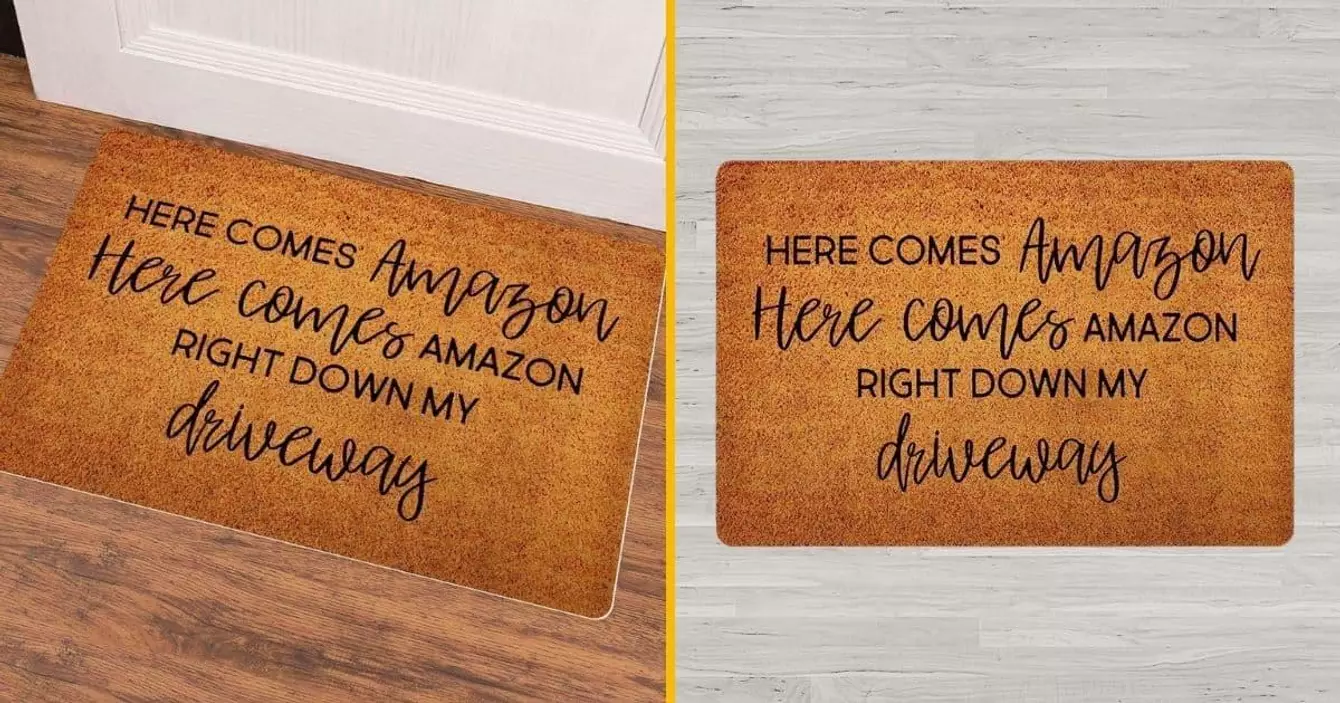 HERE COMES Amazon
Here comes AMAZON
RIGHT DOWN MY
driveway
HERE COMES Amazon
Here comes AMAZON
RIGHT DOWN MY
driveway